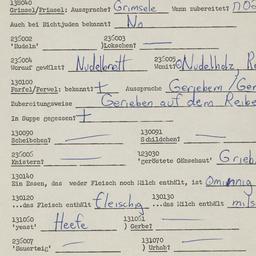 130040
Grimsel/Prünsel: Aussprache? Grimsele Wann zubereitet?
Auch bei Nichtjuden bekannt? Nn
236002 236003
'Nudeln' )Lokschen?
236004 236005
Worauf gewälzt? Nudelbrett Womit? Nudelholz
130100
Farfel/Fervel: bekannt? + Aussprache Geriebem
Zubereitungsweise Gerieben auf dem Reibe
In Suppe gegessen? +
130090 130091
Scheibchen? Schildchen?
236006 123030
Knistern? 'geröstete Gänsehaut' Grieb
130140
Ein Essen, das weder Fleisch noch Milch enthält, ist Ominnig
130120 130130
...das Fleisch enthält fleischig ...das Milch enthält mils
131060 131061
'yeast' Heefe ) Gerbe?
236007 131070
'Sauerteig' ) Urhab?